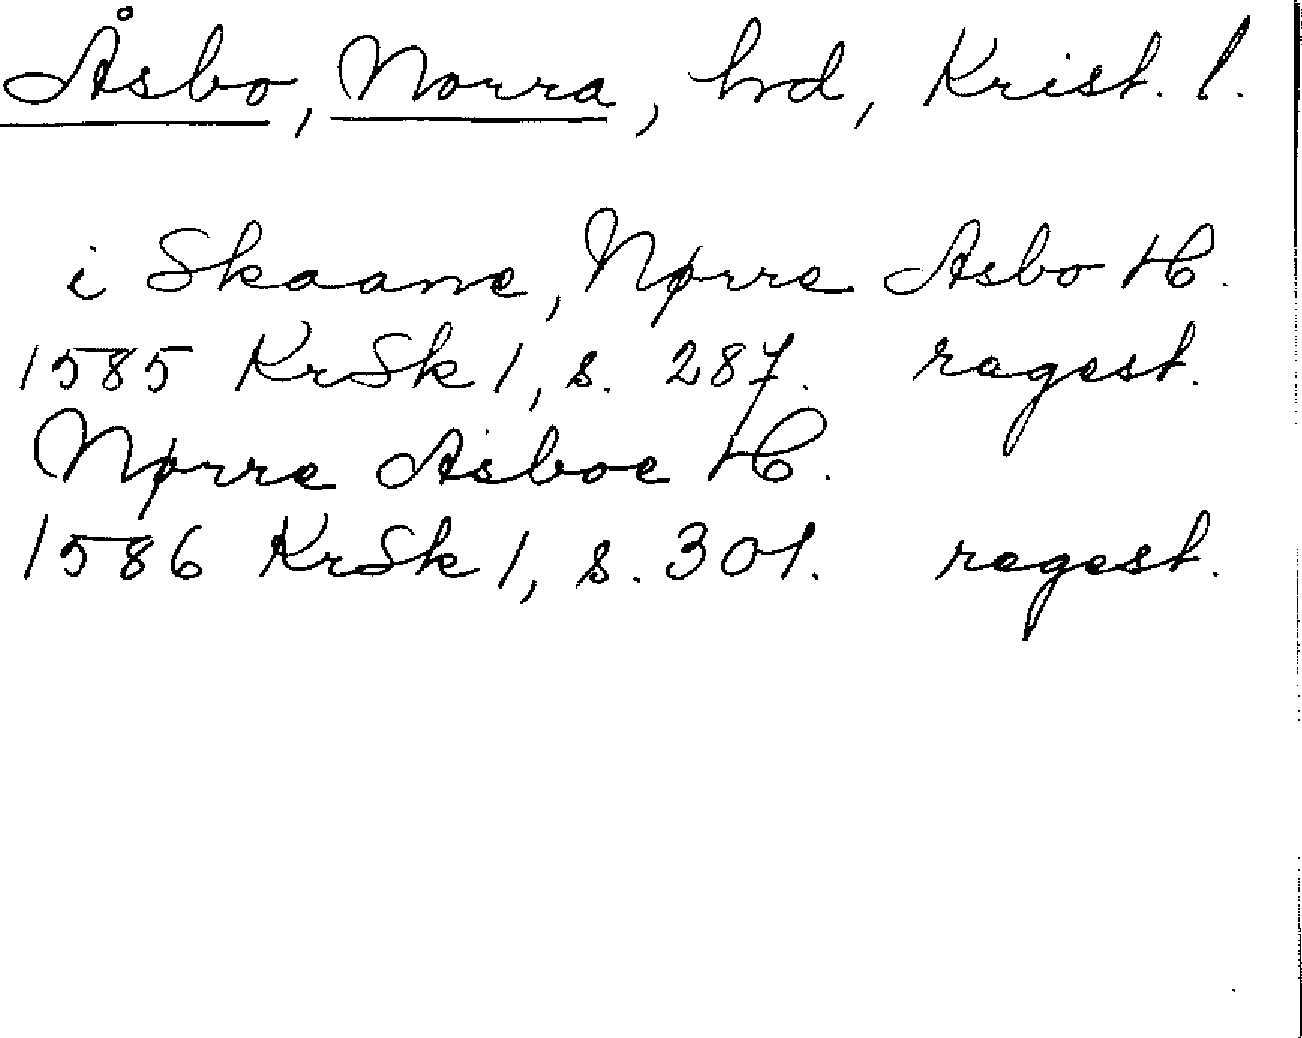 Åsbo, Norra, hd, Krist. l.
i Skaane, Nørre Asbo H.
1585 KrSk 1, s. 287. regest.
Nørre Asboe H.
1586 KrSk 1, s. 301. regest.